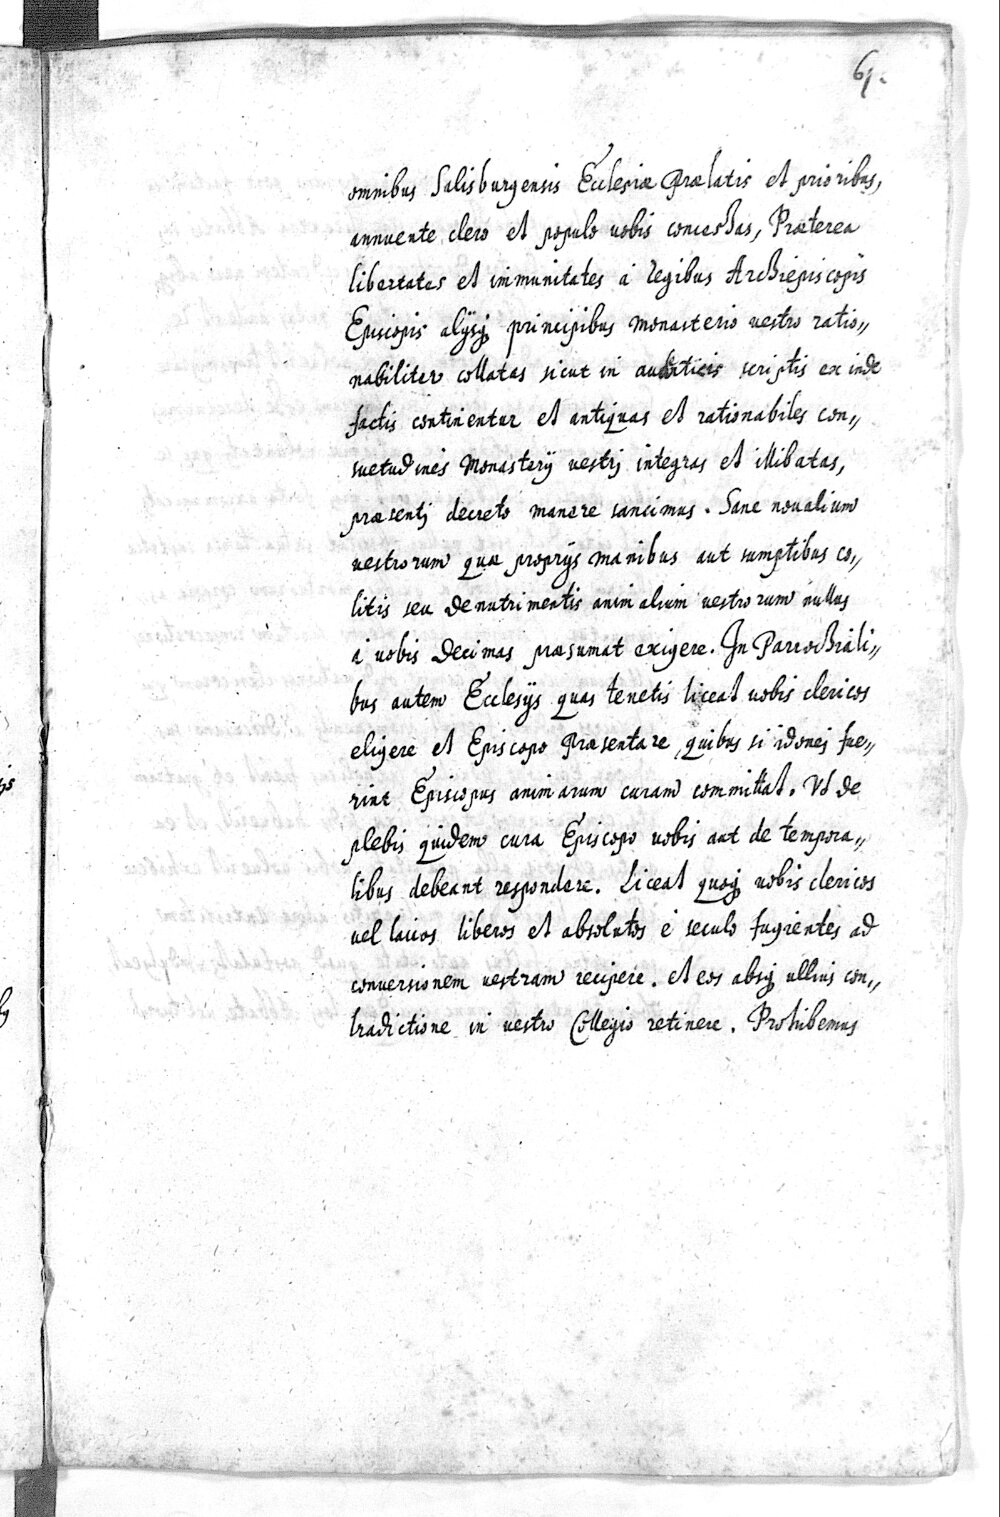 61.
omnibus Salisburgensis Ecclesiæ Prælatis et prioribus,
annuente clero et populo vobis concessas, Præterea
libertates et immunitates a regibus Archiepiscopis
Episcopis alijsq principibus monasterio vestro ratio„
nabiliter collatas sicut in autenticis scriptis ex inde
factis continentur et antiquas et rationabiles con„
suetudines Monasterij vestrj integras et illibatas,
præsentj decreto manere sancimus. Sane noualium
vestrorum quæ proprijs manibus aut sumptibus co„
litis seu de nutrimentis animalium vestrorum nullus
a vobis decimas præsumat exigere. In Parrochiali„
bus autem Ecclesijs quas tenetis liceat vobis clericos
eligere et Episcopo Præsentare, quibus si idonej fue„
rint Episcopus animarum curam committat. Vt de
plebis quidem cura Episcopo vobis aut de tempora„
libus debeant respondere. Liceat quoq vobis clericos
vel laicos liberos et absolutos e seculo fugientes ad
conversionem vestram recipere. et eos absq ullius con„
tradictione in vestro Collegio retinere. Prohibemus